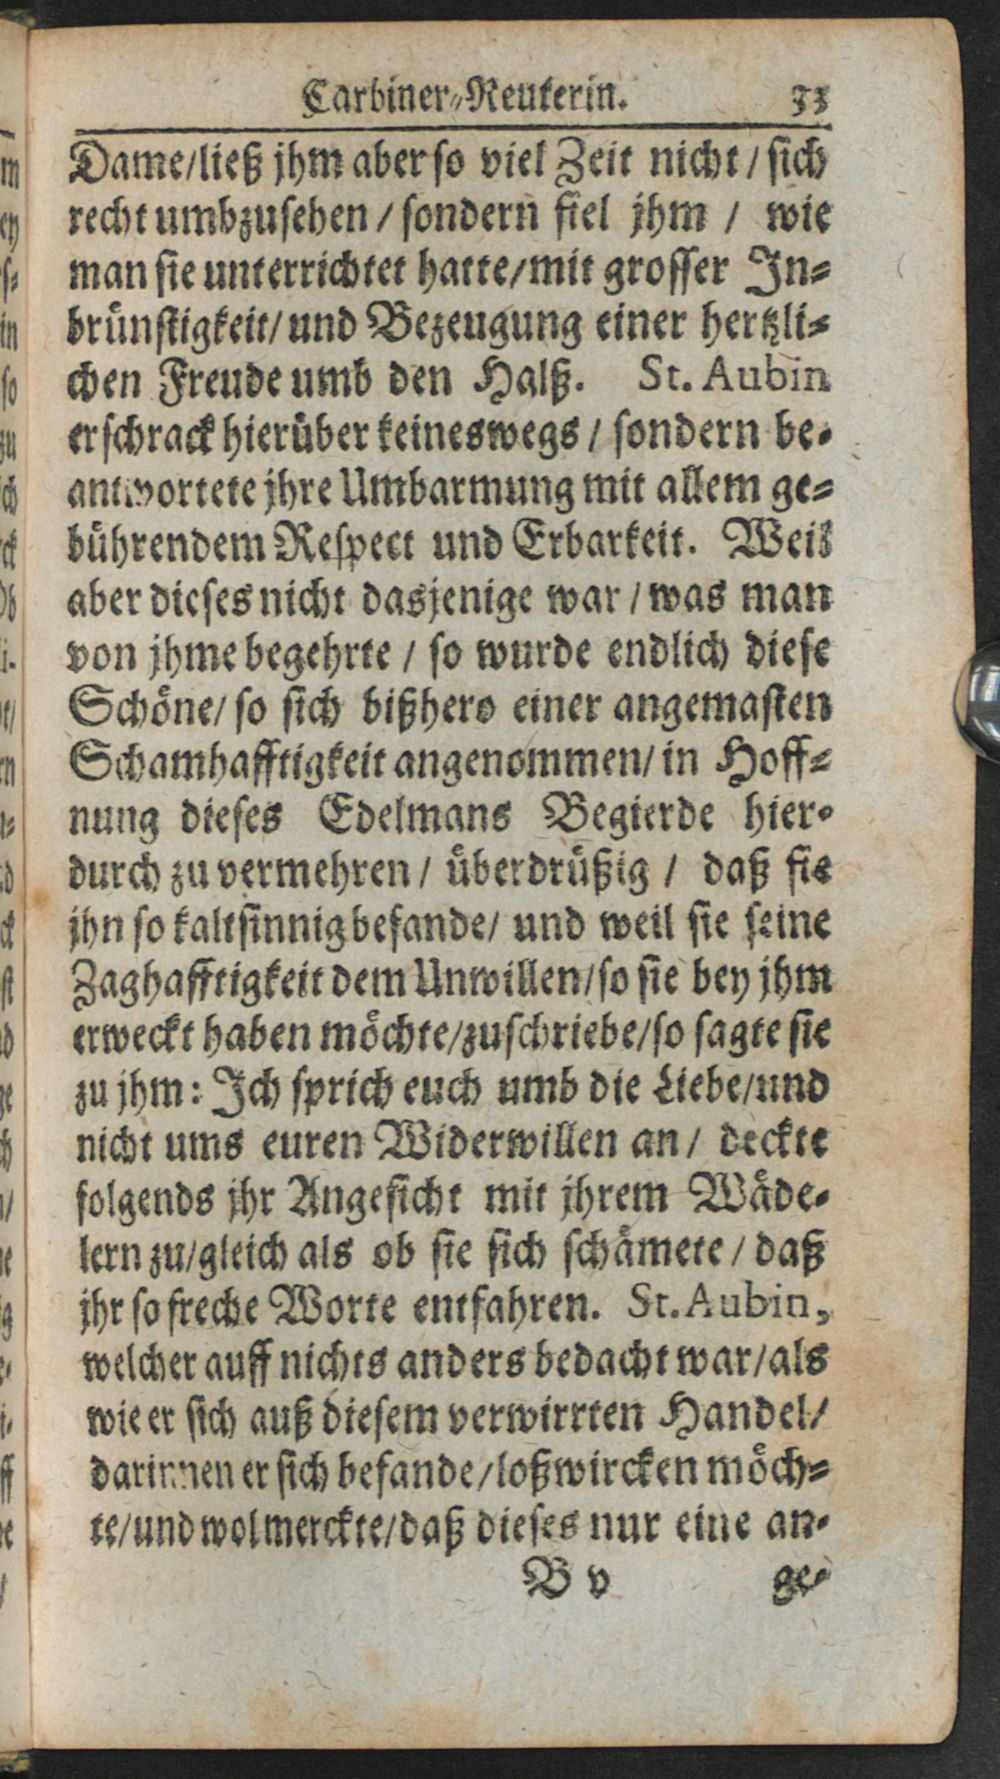 Carbiner-Reuterin. 33
Dame/ließ jhm aber so viel Zeit nicht / sich
recht umbzusehen / sondern fiel jhm / wie
man sie unterrichtet hatte/mit grosser In-
brünstigkeit/ und Bezeugung einer hertzli-
chen Freude umb den Halß. St. Aubin
erschrack hierüber keineswegs / sondern be-
antwortete jhre Umbarmung mit allem ge-
bührendem Respect und Erbarkeit. Weil
aber dieses nicht dasjenige war / was man
von jhme begehrte / so wurde endlich diese
Schöne/ so sich bißhero einer angemasten
Schamhafftigkeit angenommen/ in Hoff-
nung dieses Edelmans Begierde hier-
durch zu vermehren / überdrüßig / daß sie
jhn so kaltsinnig befande/ und weil sie seine
Zaghafftigkeit dem Unwillen/so sie bey jhm
erweckt haben möchte/zuschriebe/so sagte sie
zu jhm: Ich sprich euch umb die Liebe/und
nicht ums euren Widerwillen an / deckte
folgends jhr Angesicht mit jhrem Wäde-
lern zu/gleich als ob sie sich schämete / daß
jhr so freche Worte entfahren. St. Aubin,
welcher auff nichts anders bedacht war/als
wie er sich auß diesem verwirrten Handel/
darinnen er sich befande/loßwircken möch-
te/und wol merckte/daß dieses nur eine an-
B v ge-